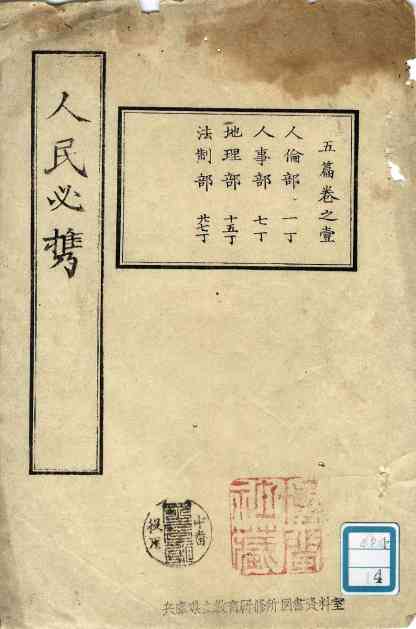 五篇卷之壹
人倫部 一丁
人事部 七丁
地理部 十五丁
法制部 廿七丁
人民必携
兵庫県立教育研修所図書資料室